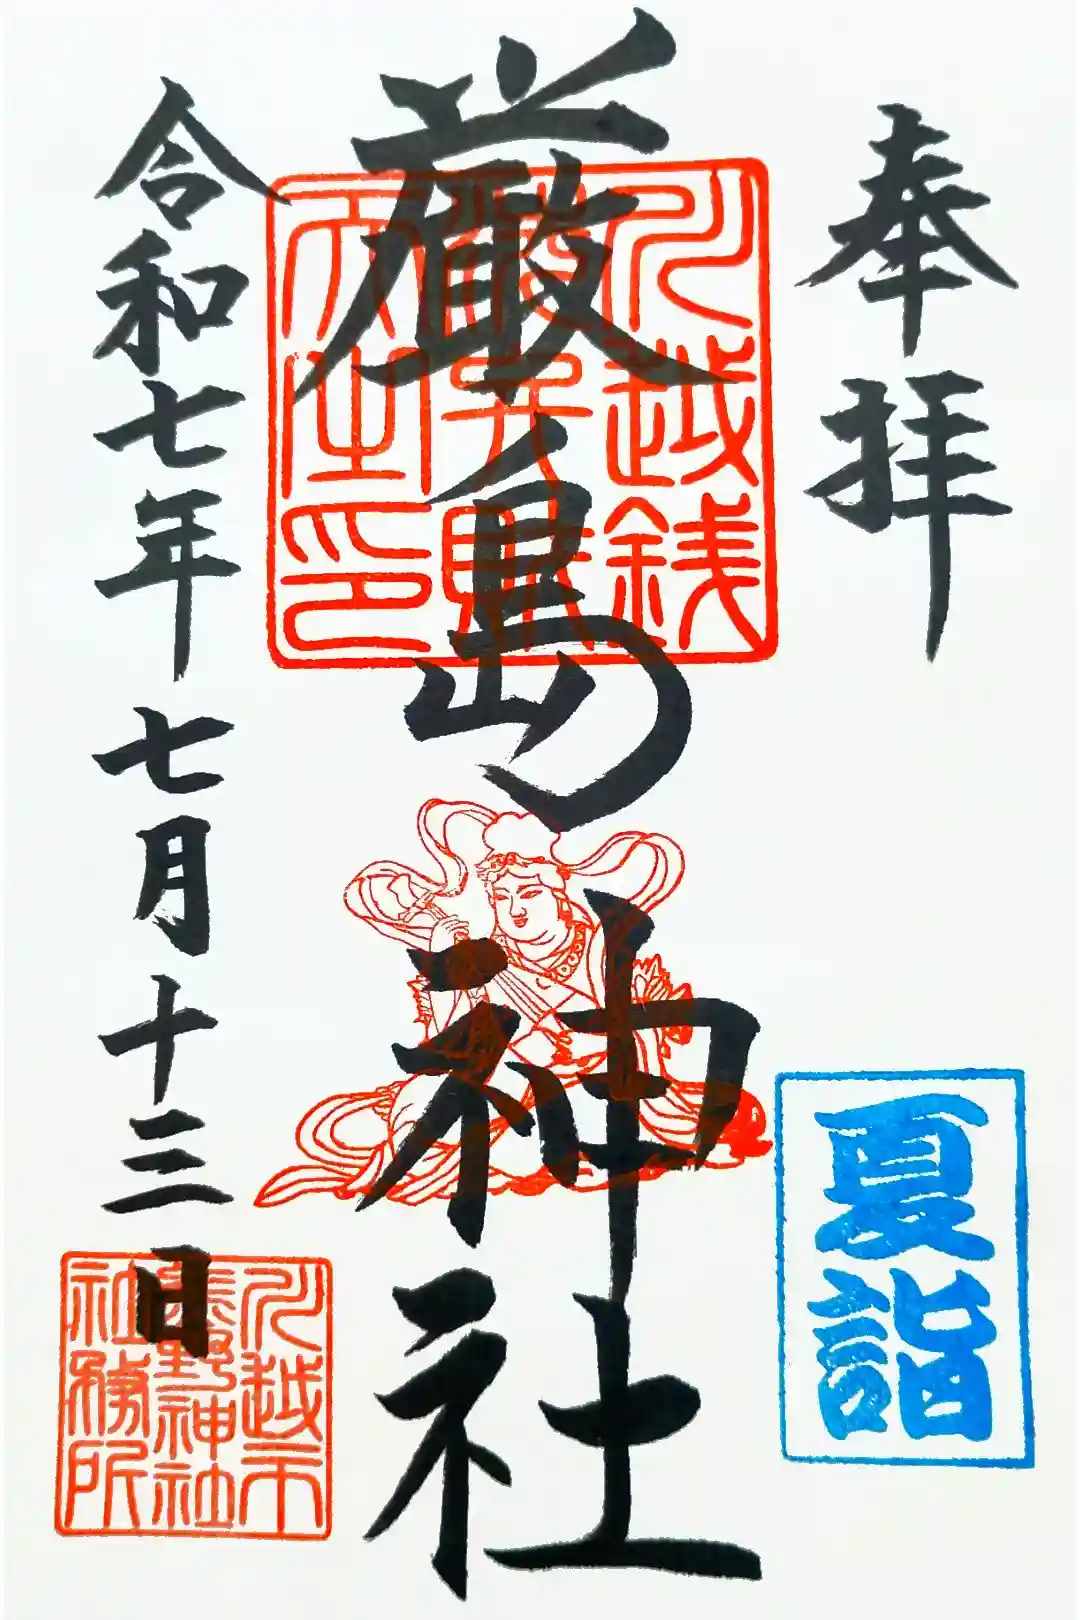 奉拝
夏詣
厳島神社
川越銭
弁財
天之印
令和七年七月十三日
川越市
熊野神社
社務所